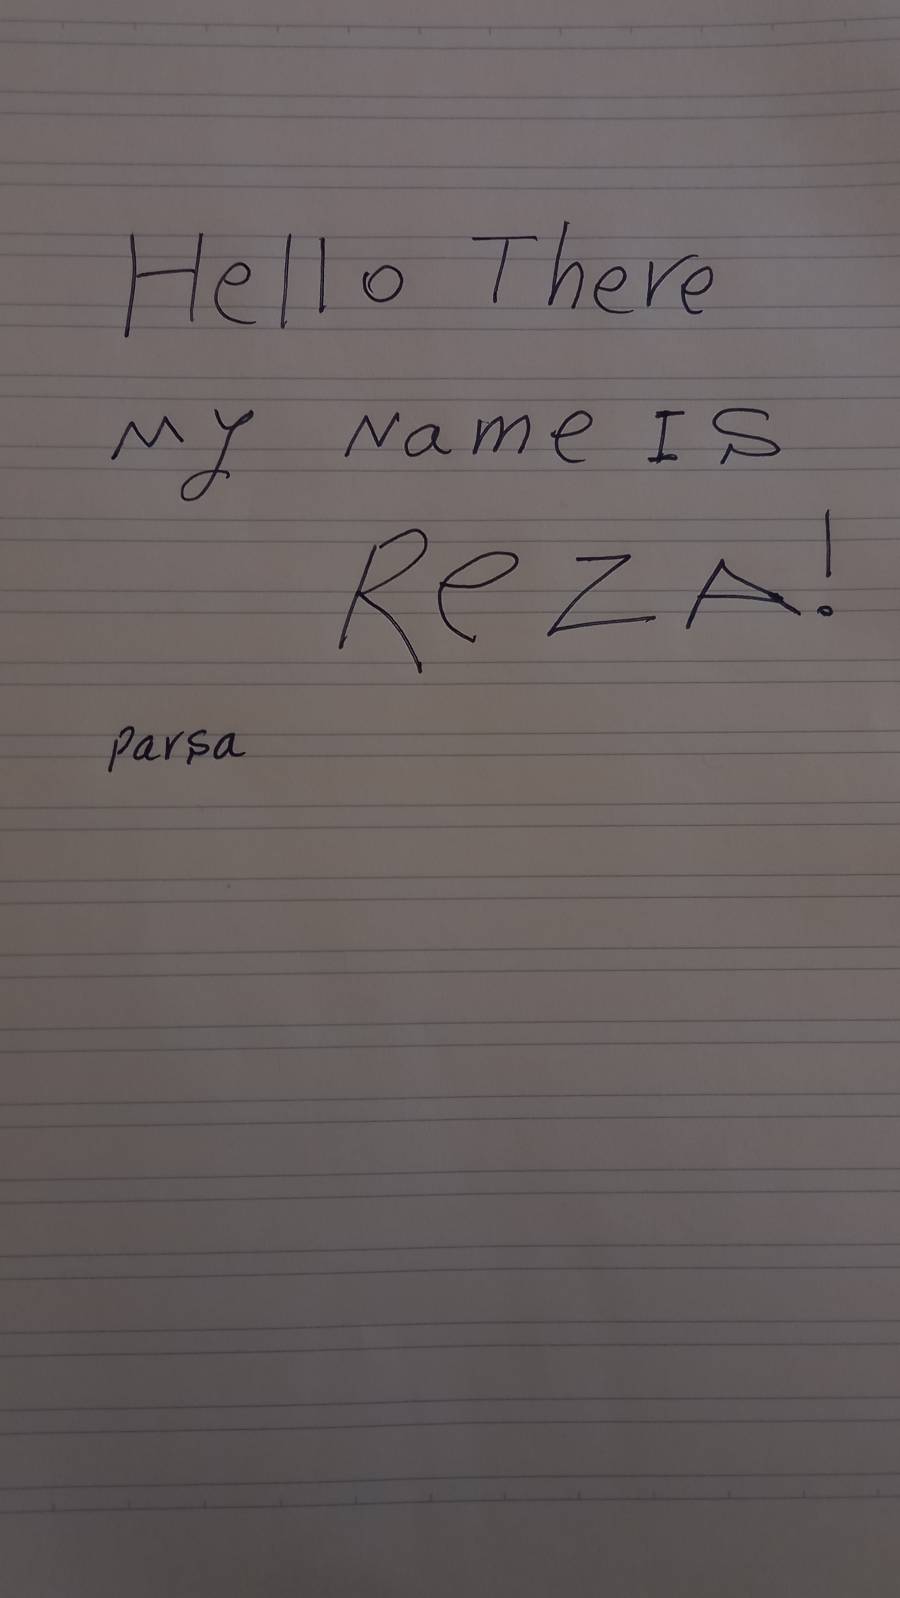 Hello There
My Name IS
ReZA!
Parsa